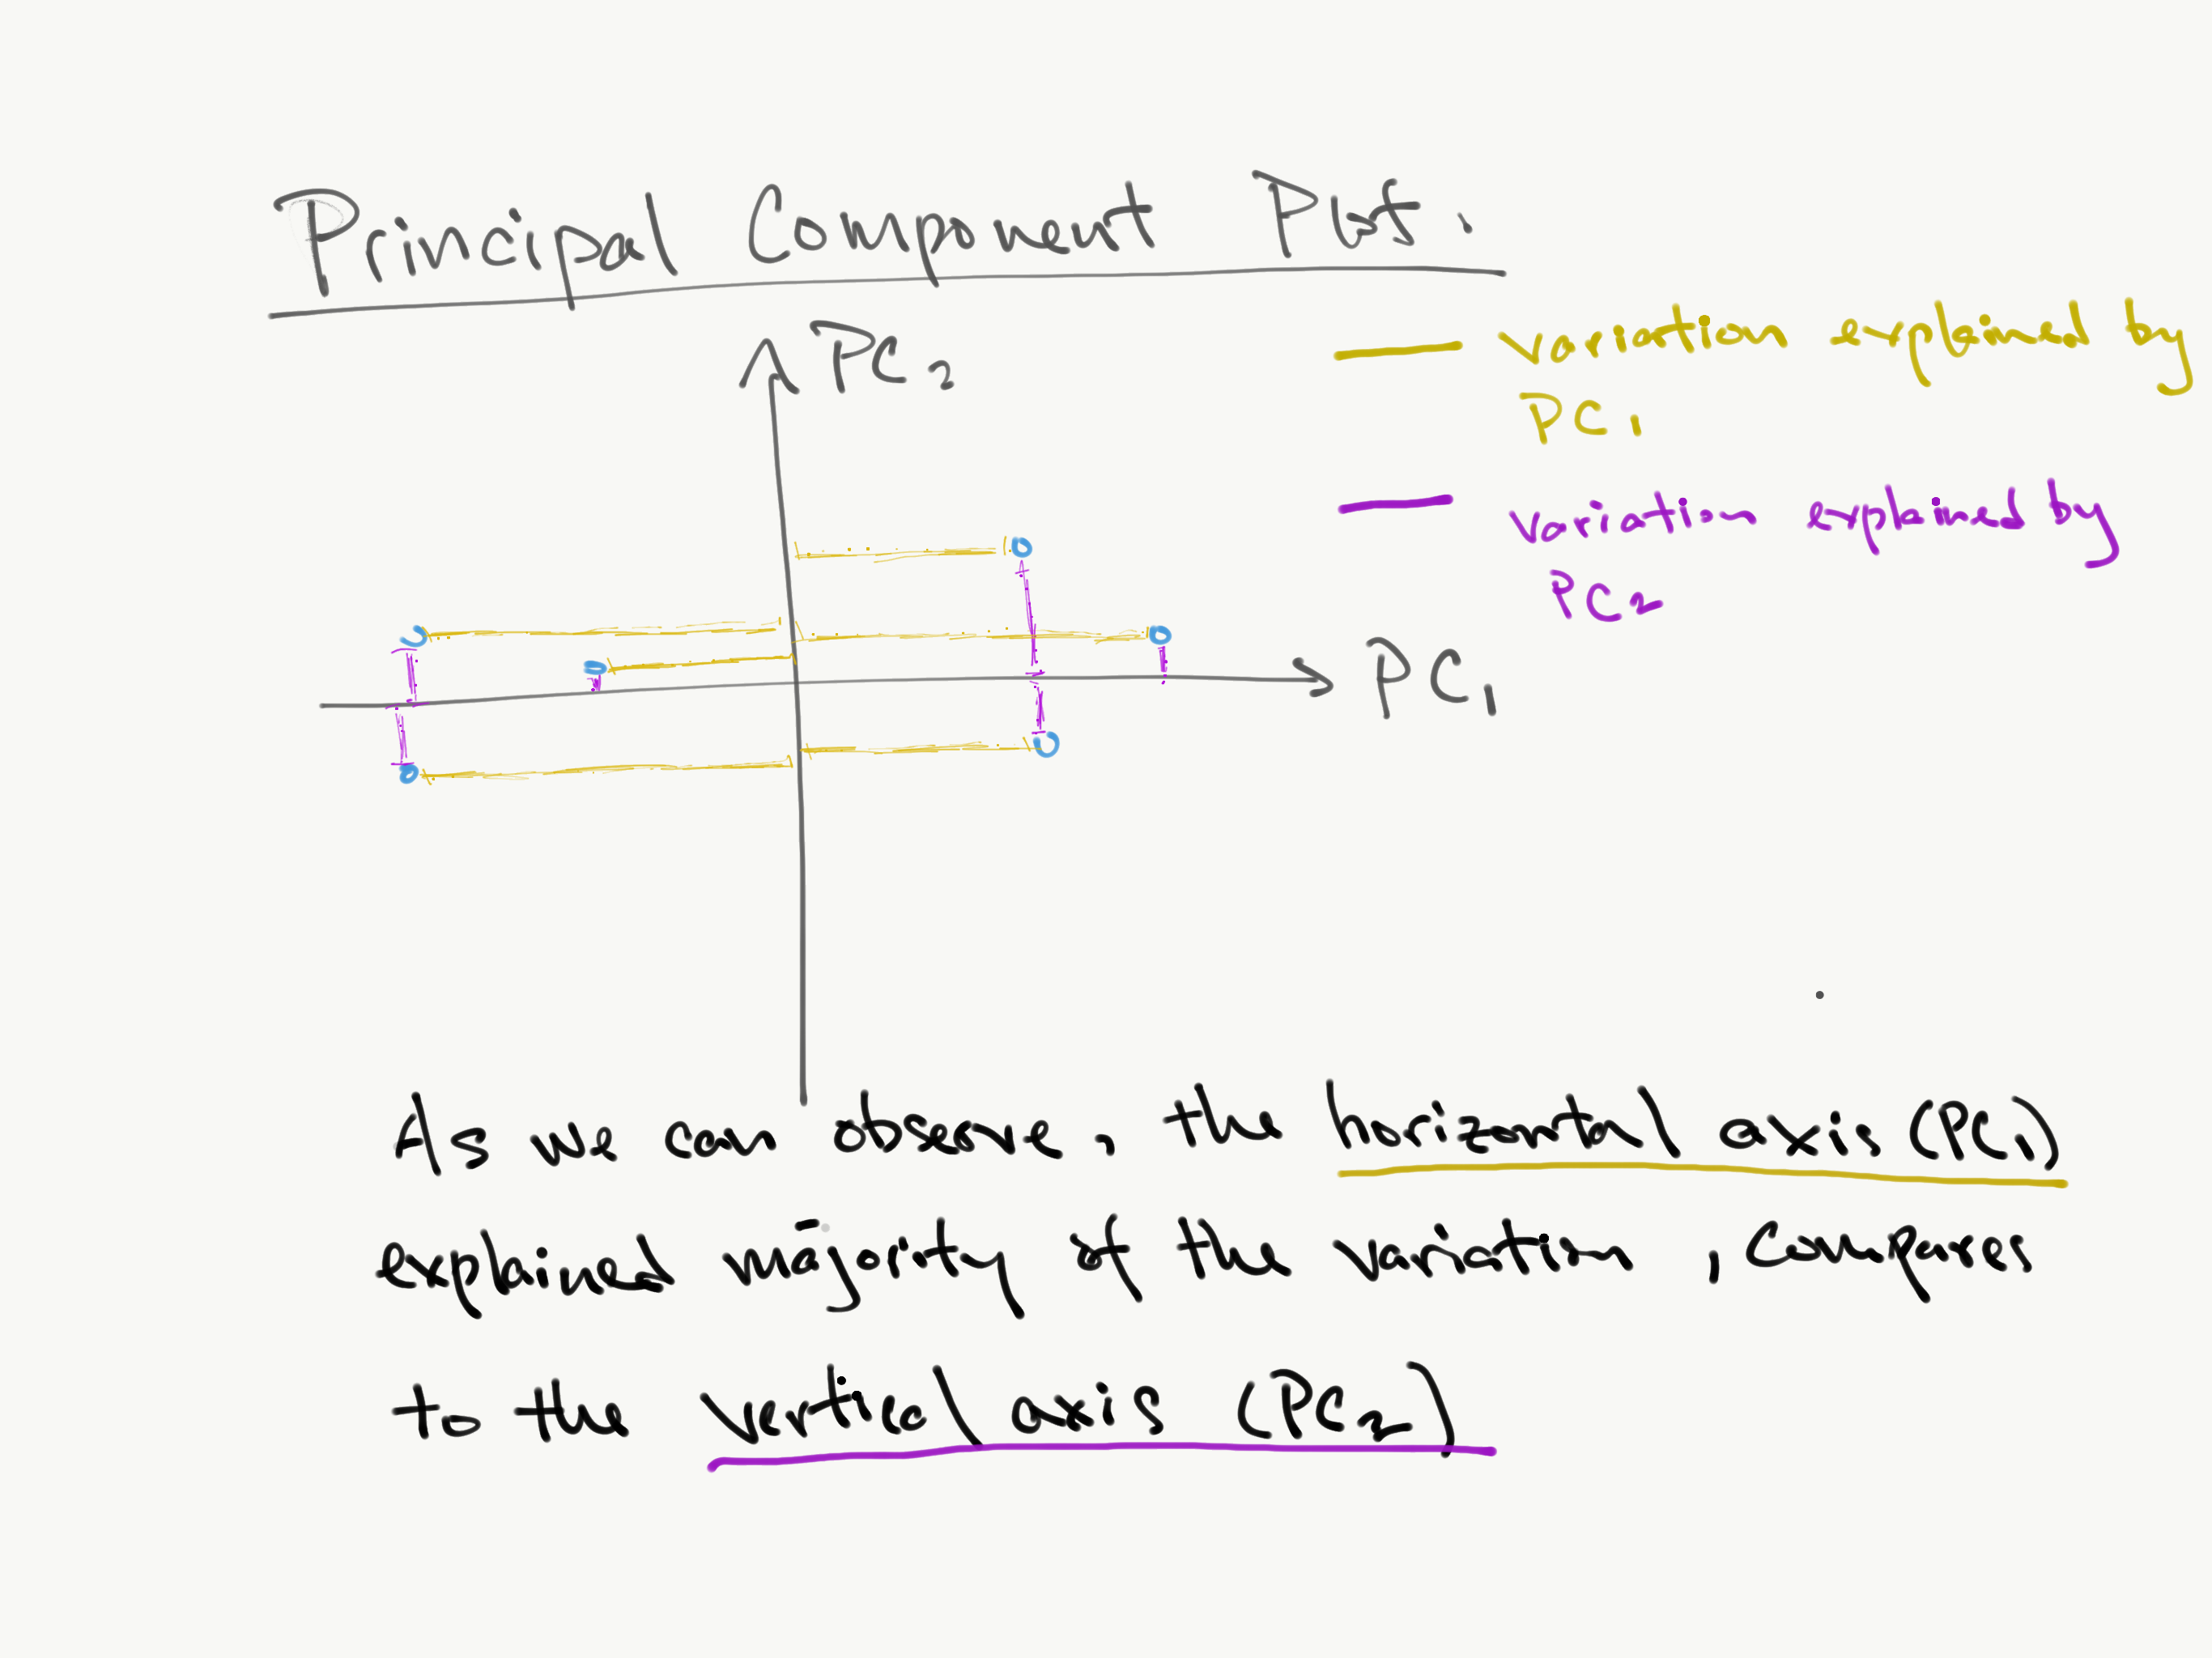 Principal Component Plot.
PC2
variation explained by
PC1
variation explained by
PC2
PC1
As we can observe, the horizontal axis (PC1)
explained majority of the variation, compares
to the vertical axis (PC2)